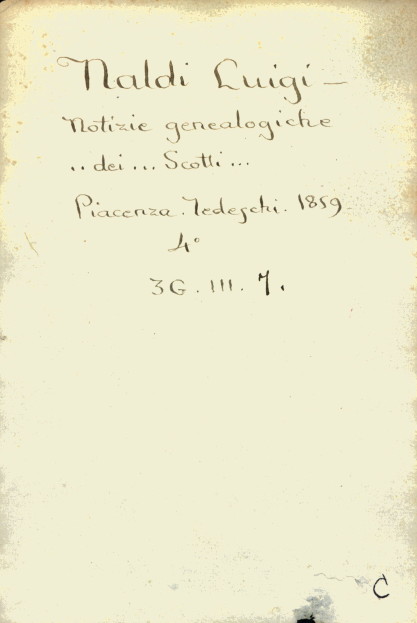 Naldi Luigi —
Notizie genealogiche
.. dei ... Scotti ...
Piacenza. Tedeschi. 1859
4°
3G. III. 7.
C